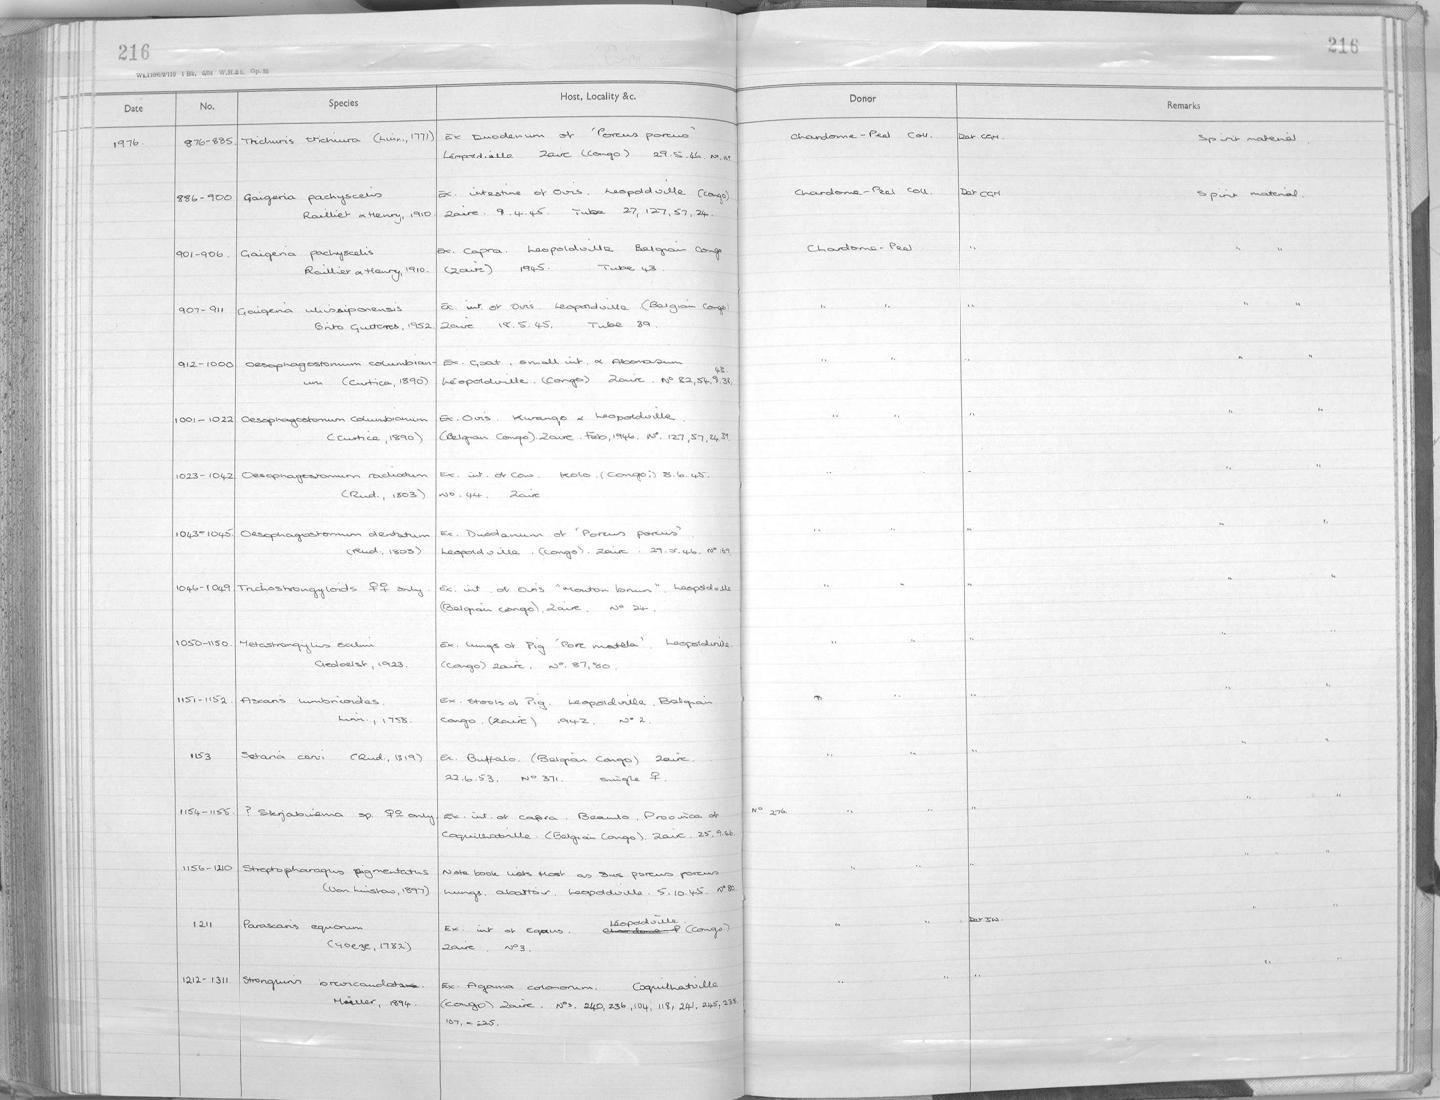 216
216
Date No. Species Host, Locality &c. Donor Remarks
1976. 876-885. Trichuris trichiura (Linn., 1771) Ex Duodenum of 'Porcus porcus' Chardome-Peel Coll. Det CGH. Spirit material.
Leopoldville Zaire (Congo) 29.5.46.
886-900 Gaigeria pachyscelis Ex. intestine of Ovis. Leopoldville (Congo) Chardome-Peel Coll. Det CGH Spirit material.
Railliet & Henry, 1910. Zaire. 9.4.45. Tube 27, 127, 57, 24.
901-906. Gaigeria pachyscelis Ex. Capra. Leopoldville Belgian Congo Chardome-Peel " " "
Railliet & Henry, 1910. (Zaire) 1945. Tube 43.
907-911 Gaigeria Ex. int. of Ovis. Leopoldville (Belgian Congo) " " " " "
1952. Zaire 18.5.45. Tube 39.
912-1000 Oesophagostomum columbian- Ex. Goat, small int. & Abomasum " " " " "
um (Curtice, 1890) Leopoldville. (Congo) Zaire. No 82, 54, 9, 38, 48.
1001-1022 Oesophagostomum columbianum Ex. Ovis. Kwango & Leopoldville. " " " " "
(Curtice, 1890) (Belgian Congo) Zaire. Feb, 1946. No. 127, 57, 24, 39.
1023-1042 Oesophagostomum radiatum Ex. int. of Cow. Kolo. (Congo.) 8.6.45. " " " "
(Rud., 1803) No. 44. Zaire
1043-1045. Oesophagostomum dentatum Ex. Duodenum of 'Porcus porcus' " " " " "
(Rud., 1803) Leopoldville. (Congo). Zaire. 29.5.46. No 169.
1046-1049 Trichostrongyloids ♀♀ only. Ex. int. of Ovis "Mouton brun". Leopoldville " " " " "
(Belgian Congo), Zaire. No 24.
1050-1150. Metastrongylus salmi Ex. lungs of Pig 'Porc matela'. Leopoldville. " " " " "
Gedoelst, 1923. (Congo) Zaire. No. 87, 80.
1151-1152. Ascaris lumbricoides. Ex. Stools of Pig. Leopoldville. Belgian " " " " "
Linn., 1758. Congo. (Zaire) 1942. No 2.
1153 Setaria cervi (Rud., 1819) Ex. Buffalo. (Belgian Congo) Zaire. " " " " "
22.6.53. No 371. single ♀.
1154-1155. ? Skrjabinema sp. ♀♀ only. Ex. int. of capra. Province of No 276. " " " " "
Coquilhatville. (Belgian Congo). Zaire. 25.9.46.
1156-1210 Streptopharagus pigmentatus Note book lists Host as Sus porcus porcus " " " " "
(Von Linstow, 1897) lungs, abattoir. Leopoldville. 5.10.45. No 80.
1211 Parascaris equorum Ex. int of Equus. Leopoldville. (Congo) " " Det JW. " "
(Goeze, 1782) Zaire. No 3.
1212-1311 Strongyluris brevicaudata. Ex. Agama colonorum. Coquilhatville " " " " "
Müller, 1894. (Congo) Zaire. Nos. 240, 236, 104, 118, 241, 245, 238.
107, = 225.